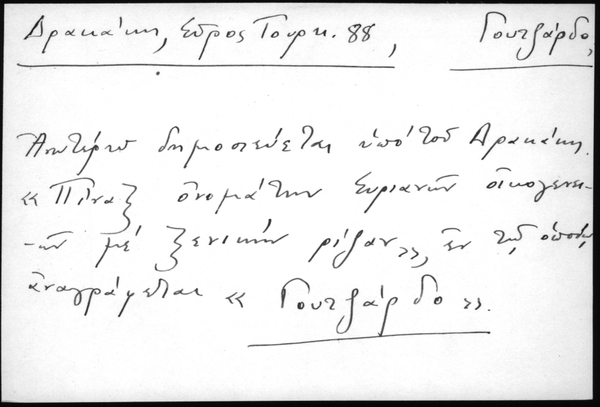 Δρακάκη, Σῦρος Τουρκ. 88, Γουτζάρδο,
Ἀνωτέρω δημοσιεύεται ὑπὸ τοῦ Δρακάκη
« Πίναξ ὀνομάτων Συριανῶν οἰκογενει-
-ῶν μὲ ξενικὴν ρίζαν», ἐν τῷ ὁποίῳ
ἀναγράφεται « Γουτζάρδο ».